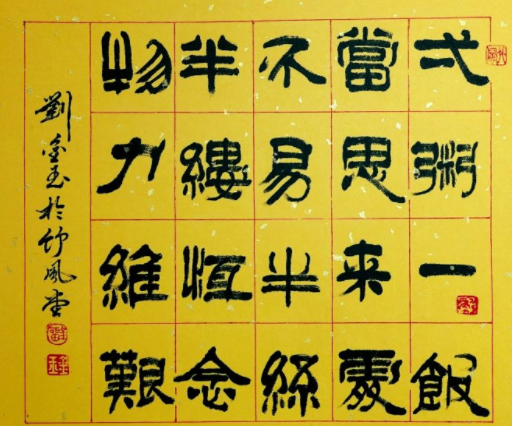 弌粥一飯
當思来處
不易半絲
半縷恆念
物力維艱
劉金玉於竹風堂